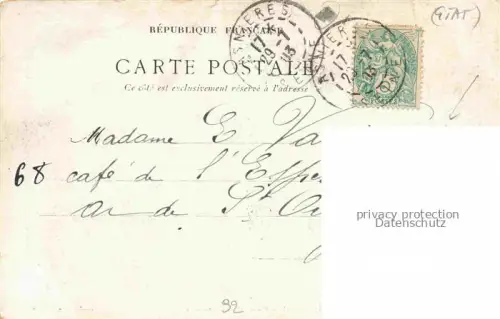 (ETAT.)
RÉPUBLIQUE FRANÇAISE
CARTE POSTALE
Ce côté est exclusivement réservé à l'adresse
ASNIERES
17
29
13
SEINE
Madame E Va
68 café de l'Espe
de St Ou
privacy protection
Datenschutz
92